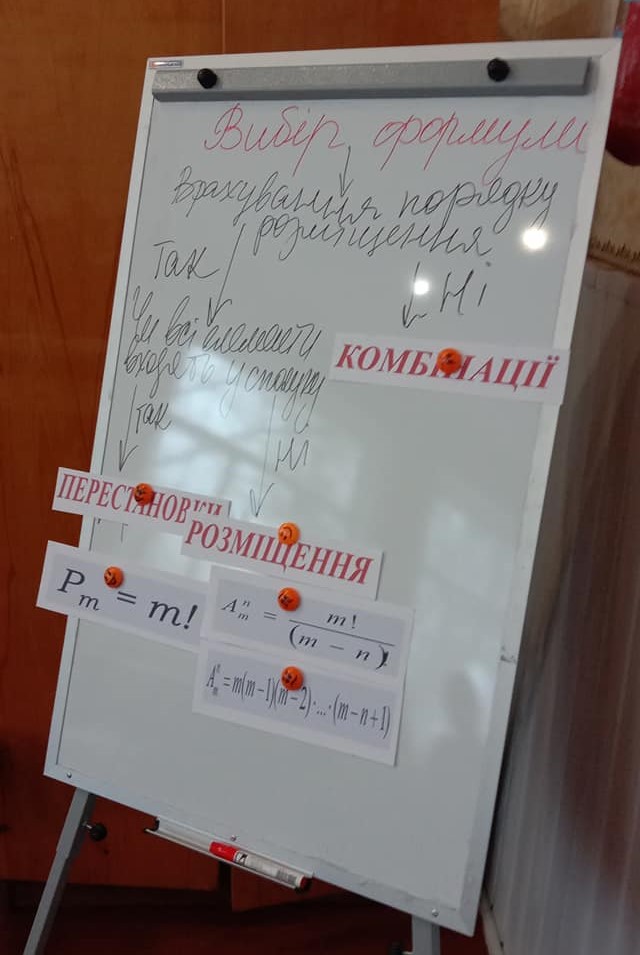 Вибір формули
Врахування порядку
розміщення
Так
Ні
Чи всі елементи
входять у сполуку
КОМБІНАЦІЇ
так
Ні
ПЕРЕСТАНОВКИ
РОЗМІЩЕННЯ
P_m = m!
A_m^n = m! / (m − n)!
A_m^n = m(m−1)(m−2)·...·(m−n+1)